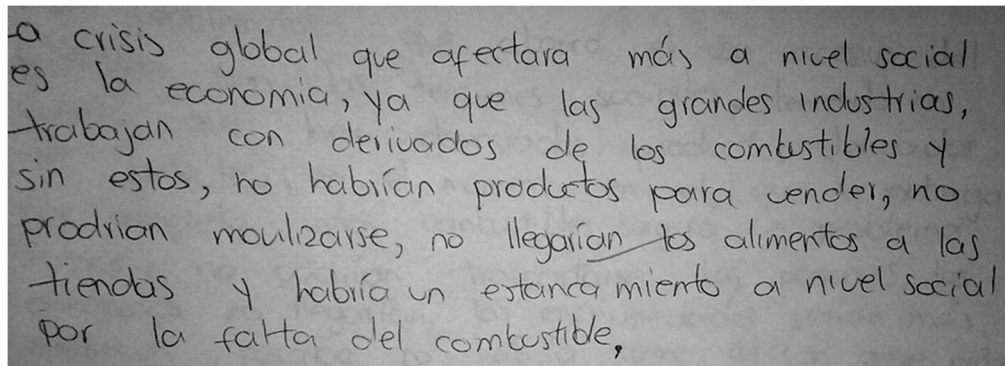 a crisis global que afectara más a nivel social
es la economia, ya que las grandes industrias,
trabajan con derivados de los combustibles y
sin estos, no habrían productos para vender, no
prodrian movilizarse, no llegarian los alimentos a las
tiendas y habria un estancamiento a nivel social
por la falta del combustible,